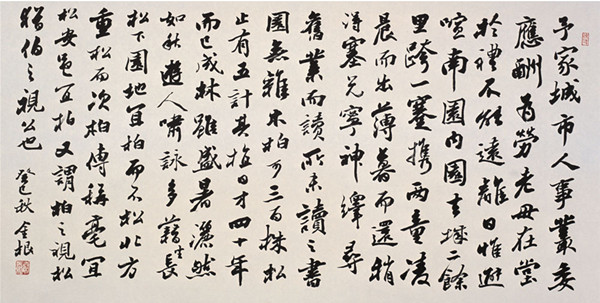 予家城市人事叢委
應酬為勞老母在堂
於禮不能遠離日惟避
喧南園內園去城二餘
里跨一蹇携兩童凌
晨而出薄暮而還稍
得塞兌寧神繹尋
舊業而讀所未讀之書
園無雜木柏可三百株松
止有五計其植日才四十年
而已成林雖盛暑灑然
如秋遊人嘯詠多藉生長
松下園地宜柏而不松北方
重松而次柏傳稱亳宜
松安邑宜柏又謂柏之視松
猶伯之視公也 癸巳秋